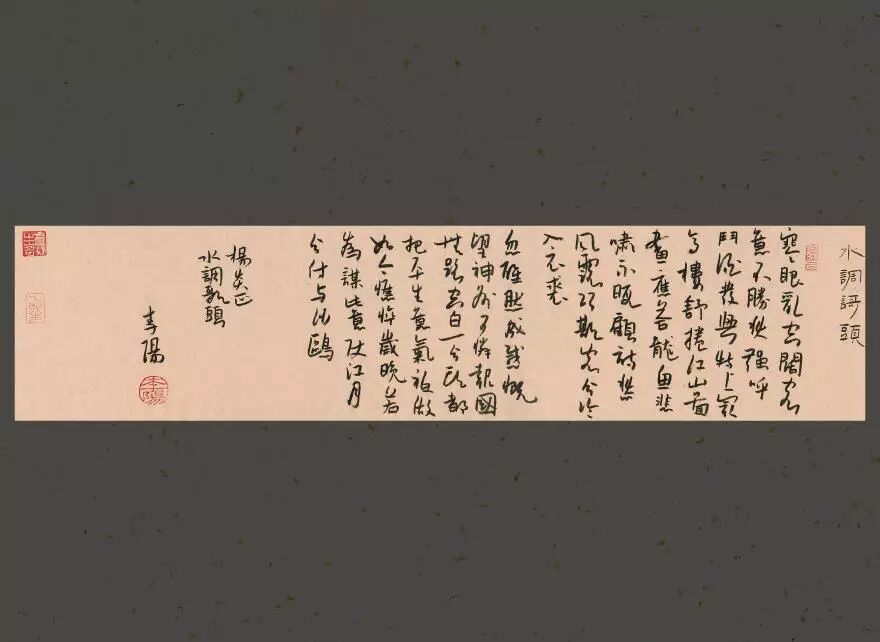 水調謌頭
寒眼亂空闊客
意不勝秋強呼
鬥酒發興特上最
高樓舒捲江山圖
畫應答龍魚悲
嘯不暇顧詩愁
風露巧欺客分冷
入衣裘
忽醒然成感慨
望神州可憐報國
無路空白一分頭都
把平生意氣祗做
如今憔悴歲晚若
為謀此意仗江月
分付与沙鷗
楊炎正
水調歌頭
李陽
李陽